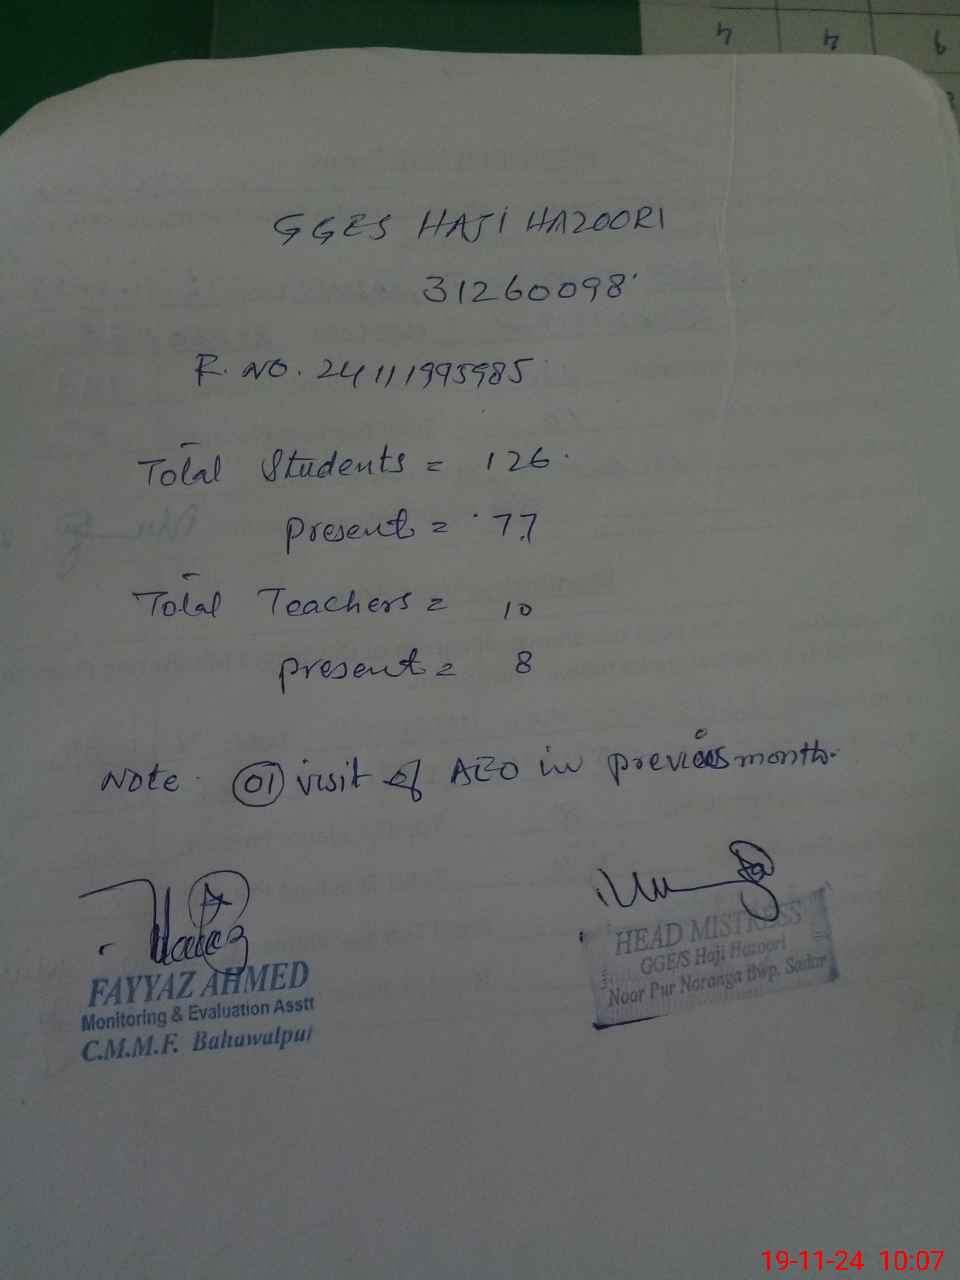 4 4 6
GGES HAJI HAZOORI
31260098
R. NO. 24111995985
Total Students = 126
present = 77
Total Teachers = 10
present = 8
Note. 01 visit of AEO in previous month.
FAYYAZ AHMED
Monitoring & Evaluation Asstt
C.M.M.F. Bahawalpur
HEAD MISTRESS
GGE/S Haji Hazoori
Noor Pur Noranga thep. Sadar
19-11-24 10:07